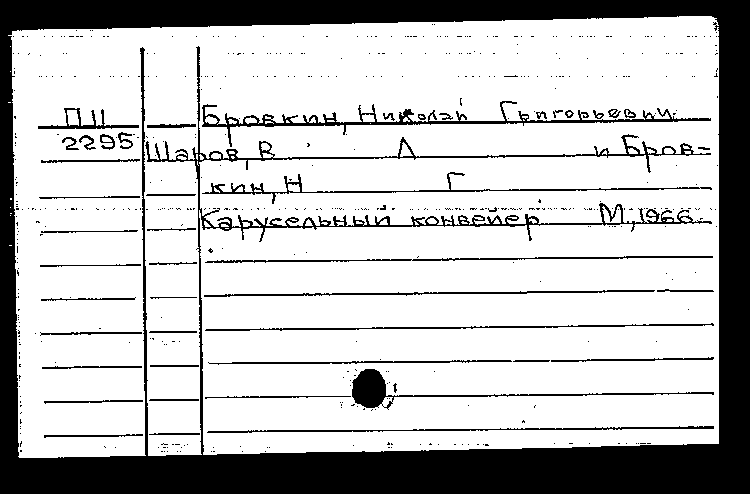 П11 Бровкин, Николай Григорьевич
2295 Шаров, В Л и Бров=
кин, Н Г
Карусельный конвейер М, 1966